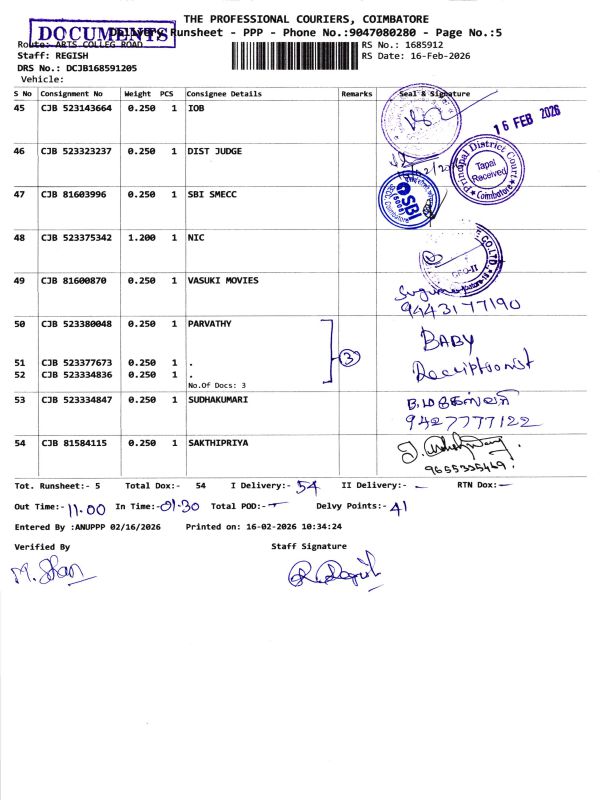 THE PROFESSIONAL COURIERS, COIMBATORE
DOCUMENTS
Delivery Runsheet - PPP - Phone No.:9047080280 - Page No.:5
Route: ARTS COLLEG ROAD
RS No.: 1685912
Staff: REGISH
RS Date: 16-Feb-2026
DRS No.: DCJB168591205
Vehicle:
S No Consignment No Weight PCS Consignee Details Remarks Seal & Signature
45 CJB 523143664 0.250 1 IOB
16 FEB 2026
46 CJB 523323237 0.250 1 DIST JUDGE
Principal District Court
Tapal Received
Coimbatore
47 CJB 81603996 0.250 1 SBI SMECC
SBI
48 CJB 523375342 1.200 1 NIC
CO.LTD.
49 CJB 81600870 0.250 1 VASUKI MOVIES
9443177190
50 CJB 523380048 0.250 1 PARVATHY
BABY
3
51 CJB 523377673 0.250 1 .
52 CJB 523334836 0.250 1 .
No.Of Docs: 3
53 CJB 523334847 0.250 1 SUDHAKUMARI
9427777122
54 CJB 81584115 0.250 1 SAKTHIPRIYA
9655335469.
Tot. Runsheet:- 5 Total Dox:- 54 I Delivery:- 54 II Delivery:- - RTN Dox:-
Out Time:- 11.00 In Time:- 01.30 Total POD:- - Delvy Points:- 41
Entered By :ANUPPP 02/16/2026 Printed on: 16-02-2026 10:34:24
Verified By Staff Signature